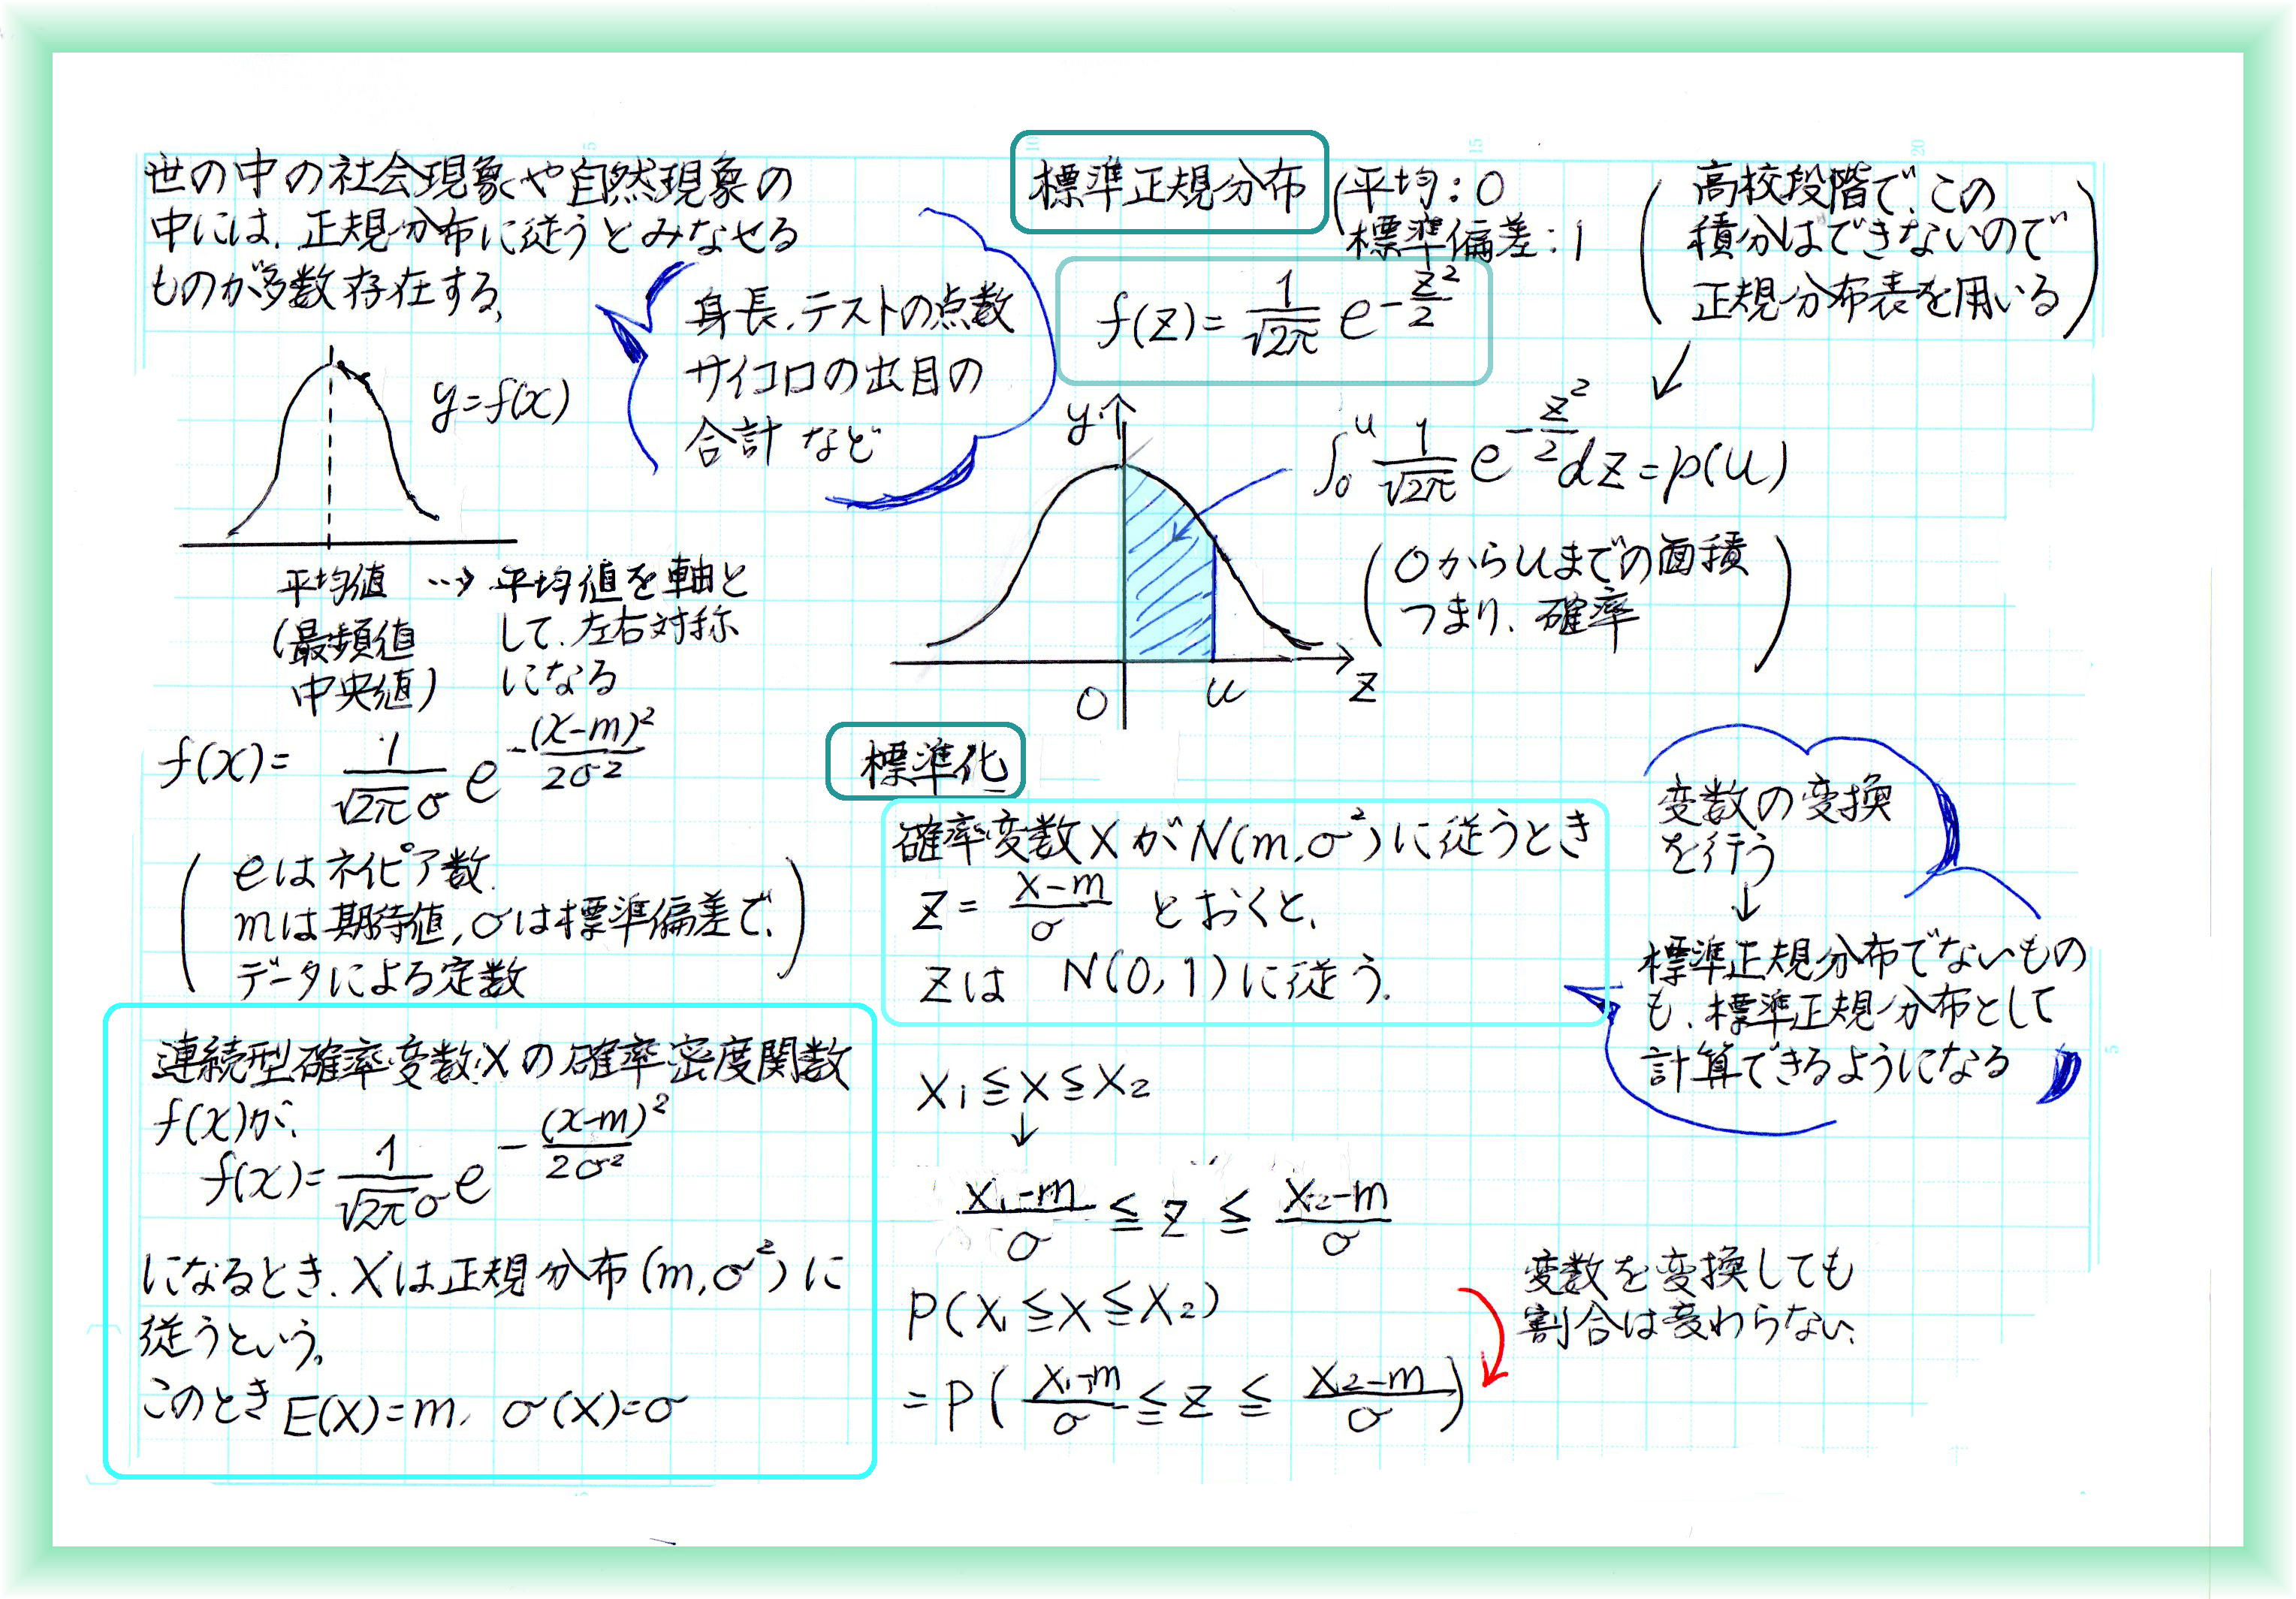 世の中の社会現象や自然現象の
中には、正規分布に従うとみなせる
ものが多数存在する。
身長、テストの点数
サイコロの出目の
合計 など
y=f(x)
平均値 …→ 平均値を軸と
(最頻値 して、左右対称
中央値) になる
f(x)= 1/(√2π σ) e^{-(x-m)²/2σ²}
eはネイピア数.
mは期待値,σは標準偏差で、
データによる定数
連続型確率変数Xの確率密度関数
f(x)が、
f(x)= 1/(√2π σ) e^{-(x-m)²/2σ²}
になるとき、Xは正規分布(m,σ²)に
従うという。
このとき E(X)=m, σ(X)=σ
標準正規分布
(平均:0
標準偏差:1
f(z)= 1/√2π e^{-z²/2}
(高校段階で、この
積分はできないので
正規分布表を用いる)
↓
∫₀ᵘ 1/√2π e^{-z²/2} dz = p(u)
(0からuまでの面積
つまり、確率)
y
O u z
標準化
確率変数XがN(m,σ²)に従うとき
Z= (X-m)/σ とおくと、
Zは N(0,1)に従う.
変数の変換
を行う
↓
標準正規分布でないもの
も、標準正規分布として
計算できるようになる
X₁≦X≦X₂
↓
(X₁-m)/σ ≦ Z ≦ (X₂-m)/σ
P(X₁≦X≦X₂)
=P( (X₁-m)/σ ≦ Z ≦ (X₂-m)/σ )
変数を変換しても
割合は変わらない、
5
10
15
20
5